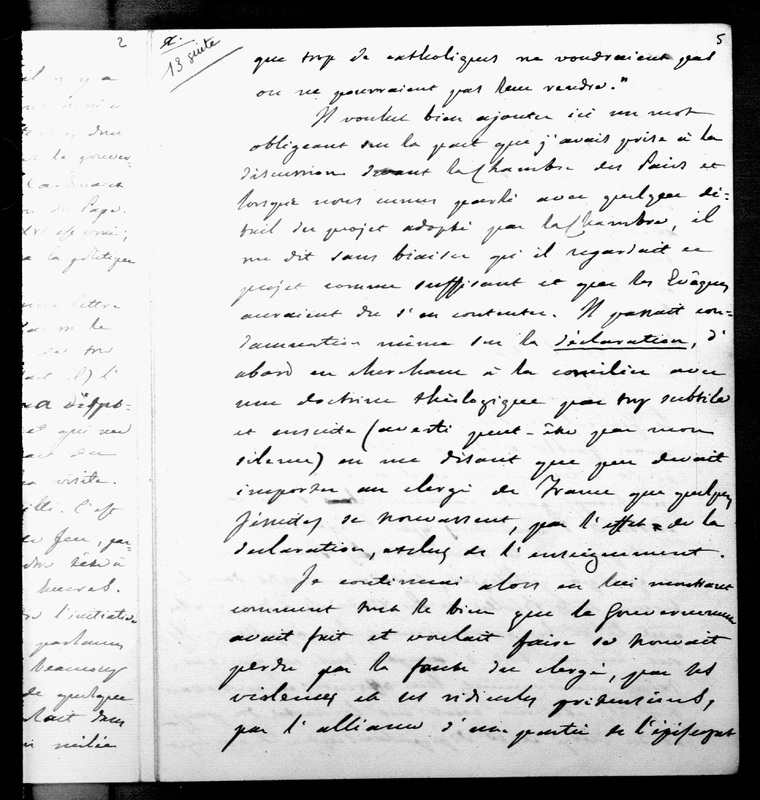 2
il n'y a
du
le gouver-
du Pape.
XVI est vrai;
à la politique
lettre
le
l'
dispo-
et qui
visite.
C'est
l'initiative
partants
beaucoup
de quelque
était dans
mêlée
x.
13 suite
5
que trop de catholiques ne voudraient pas
ou ne pourraient pas leur rendre."
Il voulut bien ajouter ici un mot
obligeant sur la part que j'avais prise à la
discussion devant la Chambre des Pairs et
lorsque nous eûmes parlé avec quelque dé-
tail du projet adopté par la Chambre, il
me dit sans biaiser qu'il regardait ce
projet comme suffisant et que les Evêques
auraient dû s'en contenter. Il passait con-
damnation même sur la déclaration, d'
abord en cherchant à la concilier avec
une doctrine théologique par trop subtile
et ensuite (averti peut-être par mon
silence) en me disant que peu devait
importer au clergé de France que quelques
Jésuites se trouvassent, par l'effet de la
déclaration, exclus de l'enseignement.
Je continuai alors en lui montrant
comment tout le bien que le Gouvernement
avait fait et voulait faire se trouvait
perdu par la faute du clergé, par ses
violences et ses ridicules prétentions,
par l'alliance d'une partie de l'épiscopat